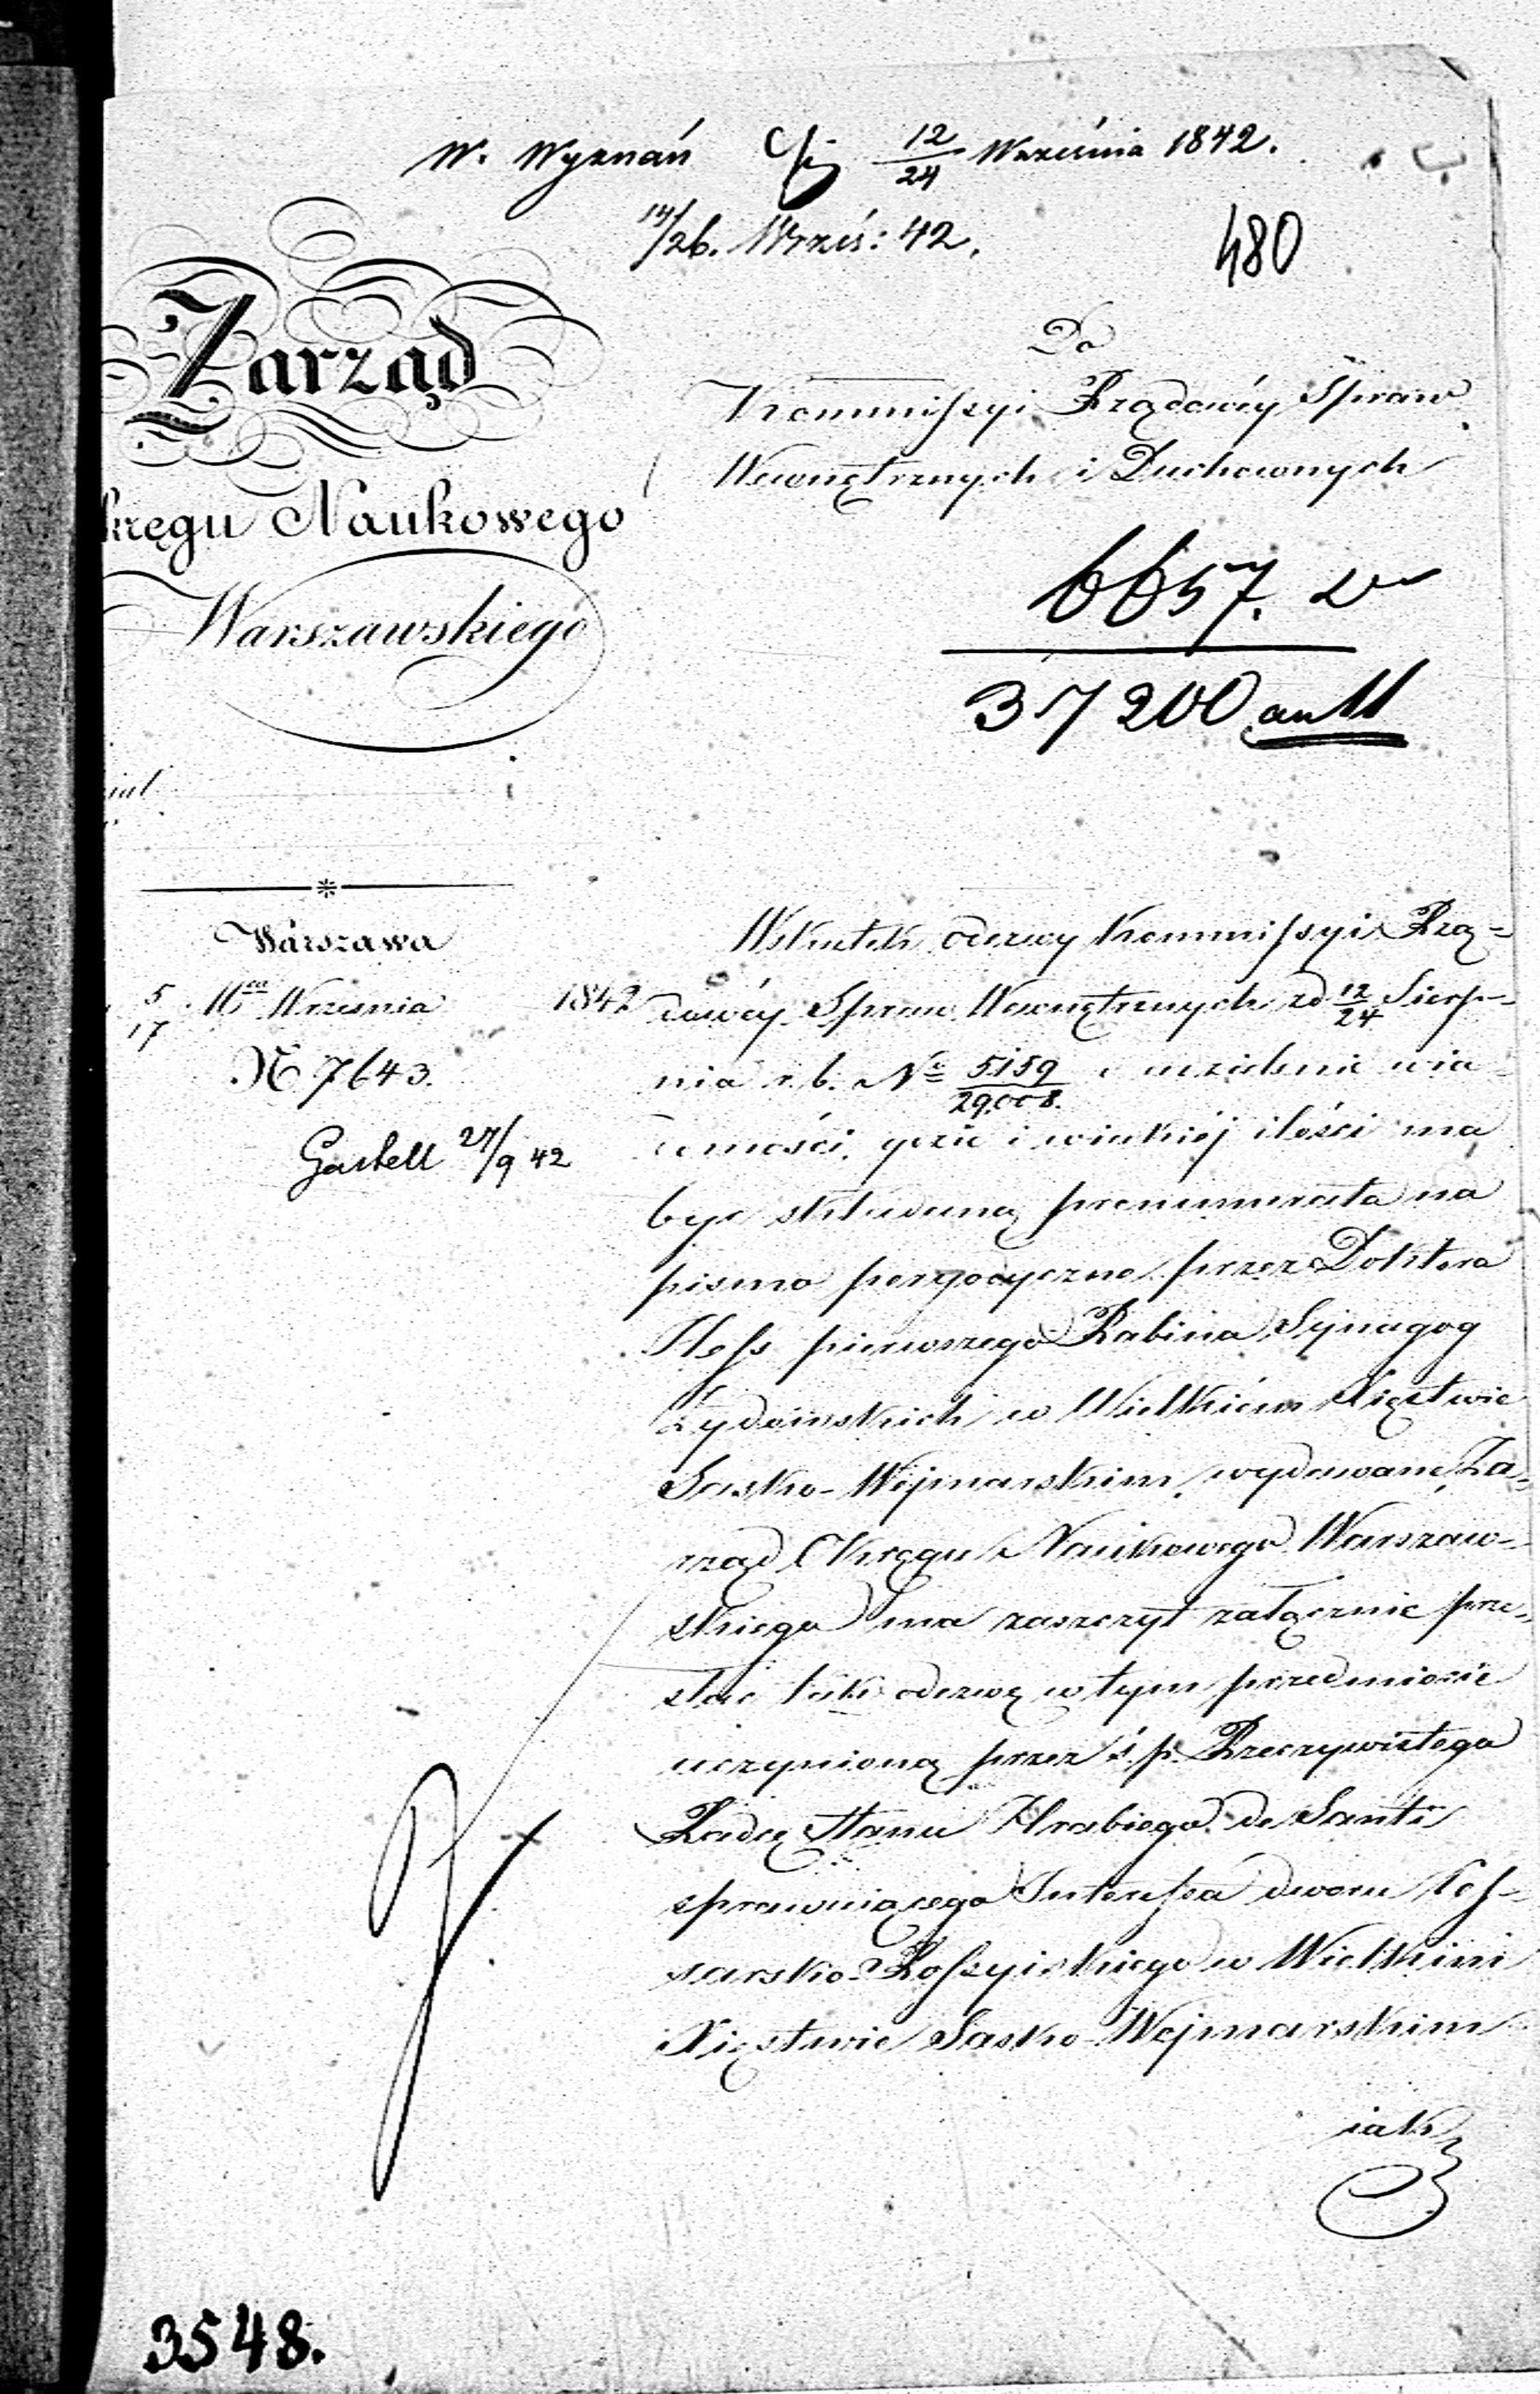 W. Wyznań 12/24 Września 1842.
14/26. Wrześ: 42.
480
Zarząd
kręgu Naukowego
Warszawskiego
Do
Kommissyi Rządowéy Spraw
Wewnętrznych i Duchownych
6657.
37200
Warszawa
5/17 Mca Września 1842
N 7643.
27/9 42
Wskutek odezwy Kommissyi Rzą-
dowéy Spraw Wewnętrznych zd 12/24 Sierp-
nia r. b. No 5159/29008. o udzielenie wia-
domości, gdzie i w iakiéj ilości ma
być składaną prenumerata na
pismo peryodyczne przez Doktora
Hess pierwszego Rabina Synagog
żydowskich w Wielkiém Xięztwie
Sasko-Wejmarskim, wydawane, Za-
rząd Okręgu Naukowego Warszaw-
skiego ma zaszczyt załącznie prze-
słać taką odezwę w tym przedmiocie
uczynioną przez ś. p. Rzeczywistego
Radcę Stanu Hrabiego de Santi
sprawuiącego Interessa dworu Ces-
sarsko-Rossyiskiego w Wielkim
Xięstwie Sasko-Wejmarskim
iak
3548.